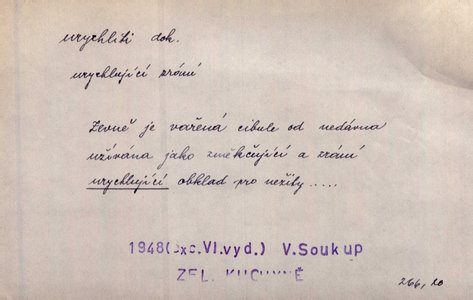 urychliti dok.
urychlující zrání
Zevně je vařená cibule od nedávna
užívána jako změkčující a zrání
urychlující obklad pro nežity.....
1948(exc.VI.vyd.) V.Soukup
ZEL. KUCHYNĚ
266, 20